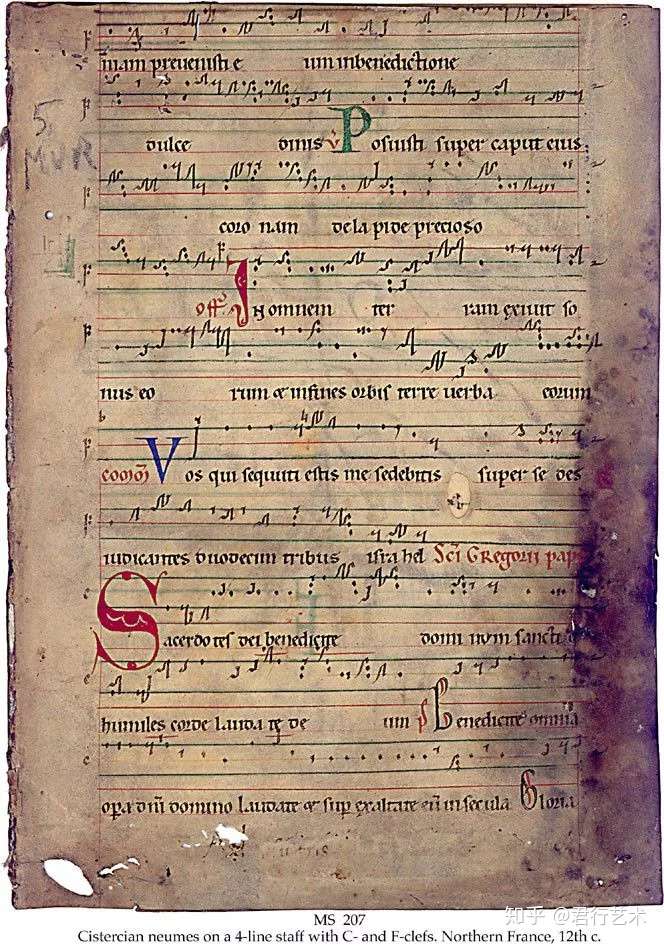 niam prevenisti e um inbenedictione
dulce dinis v Posuisti super caput eius
coro nam dela pide precioso
off In omnem ter ram exivit so
nus eo rum & infines orbis terre verba eorum
Vos qui sequuti estis me sedebitis super se des
iudicantes duodecim tribus isra hel Sci Gregorii pap
Sacerdotes dei benedicite domi num sancti
humiles corde lauda te de um Benedicite omnia
opera dni domino laudate & sup exaltate eu in secula Gloria
5
MVR
知乎 @君行艺术
MS 207
Cistercian neumes on a 4-line staff with C- and F-clefs. Northern France, 12th c.